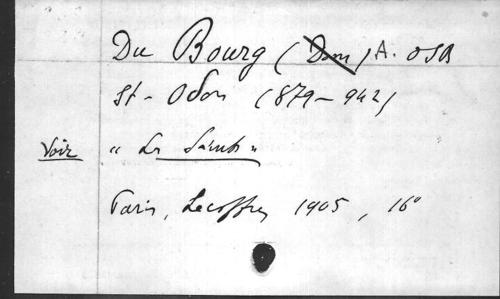 Du Bourg (Dom) A. OSB
St-Odon (879-942)
Voir "Les Saints"
Paris, Lecoffre, 1905, 16°